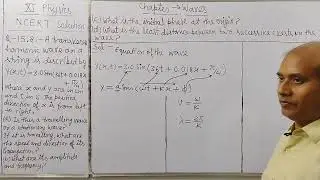 XI Physics
NCERT Solution
Q-15.8:- A transverse
harmonic wave on a
string is described by
Y(x,t)=3.0 sin(36t+0.018x
+π/4)
where x and y are in cm
and t in s. The positive
direction of x is from left
to right.
(a) Is this a travelling wave
or a stationary wave?
If it is travelling, what are
the speed and direction of its
propagation?
(b) What are its amplitude
and frequency?
Chapter → Waves
(c) What is the initial phase at the origin?
(d) What is the least distance between two successive crests in the
wave?
Sol - Equation of the wave
Y(x,t) = 3.0 sin(36t + 0.018x + π/4)
v = ω/k
λ = 2π/k